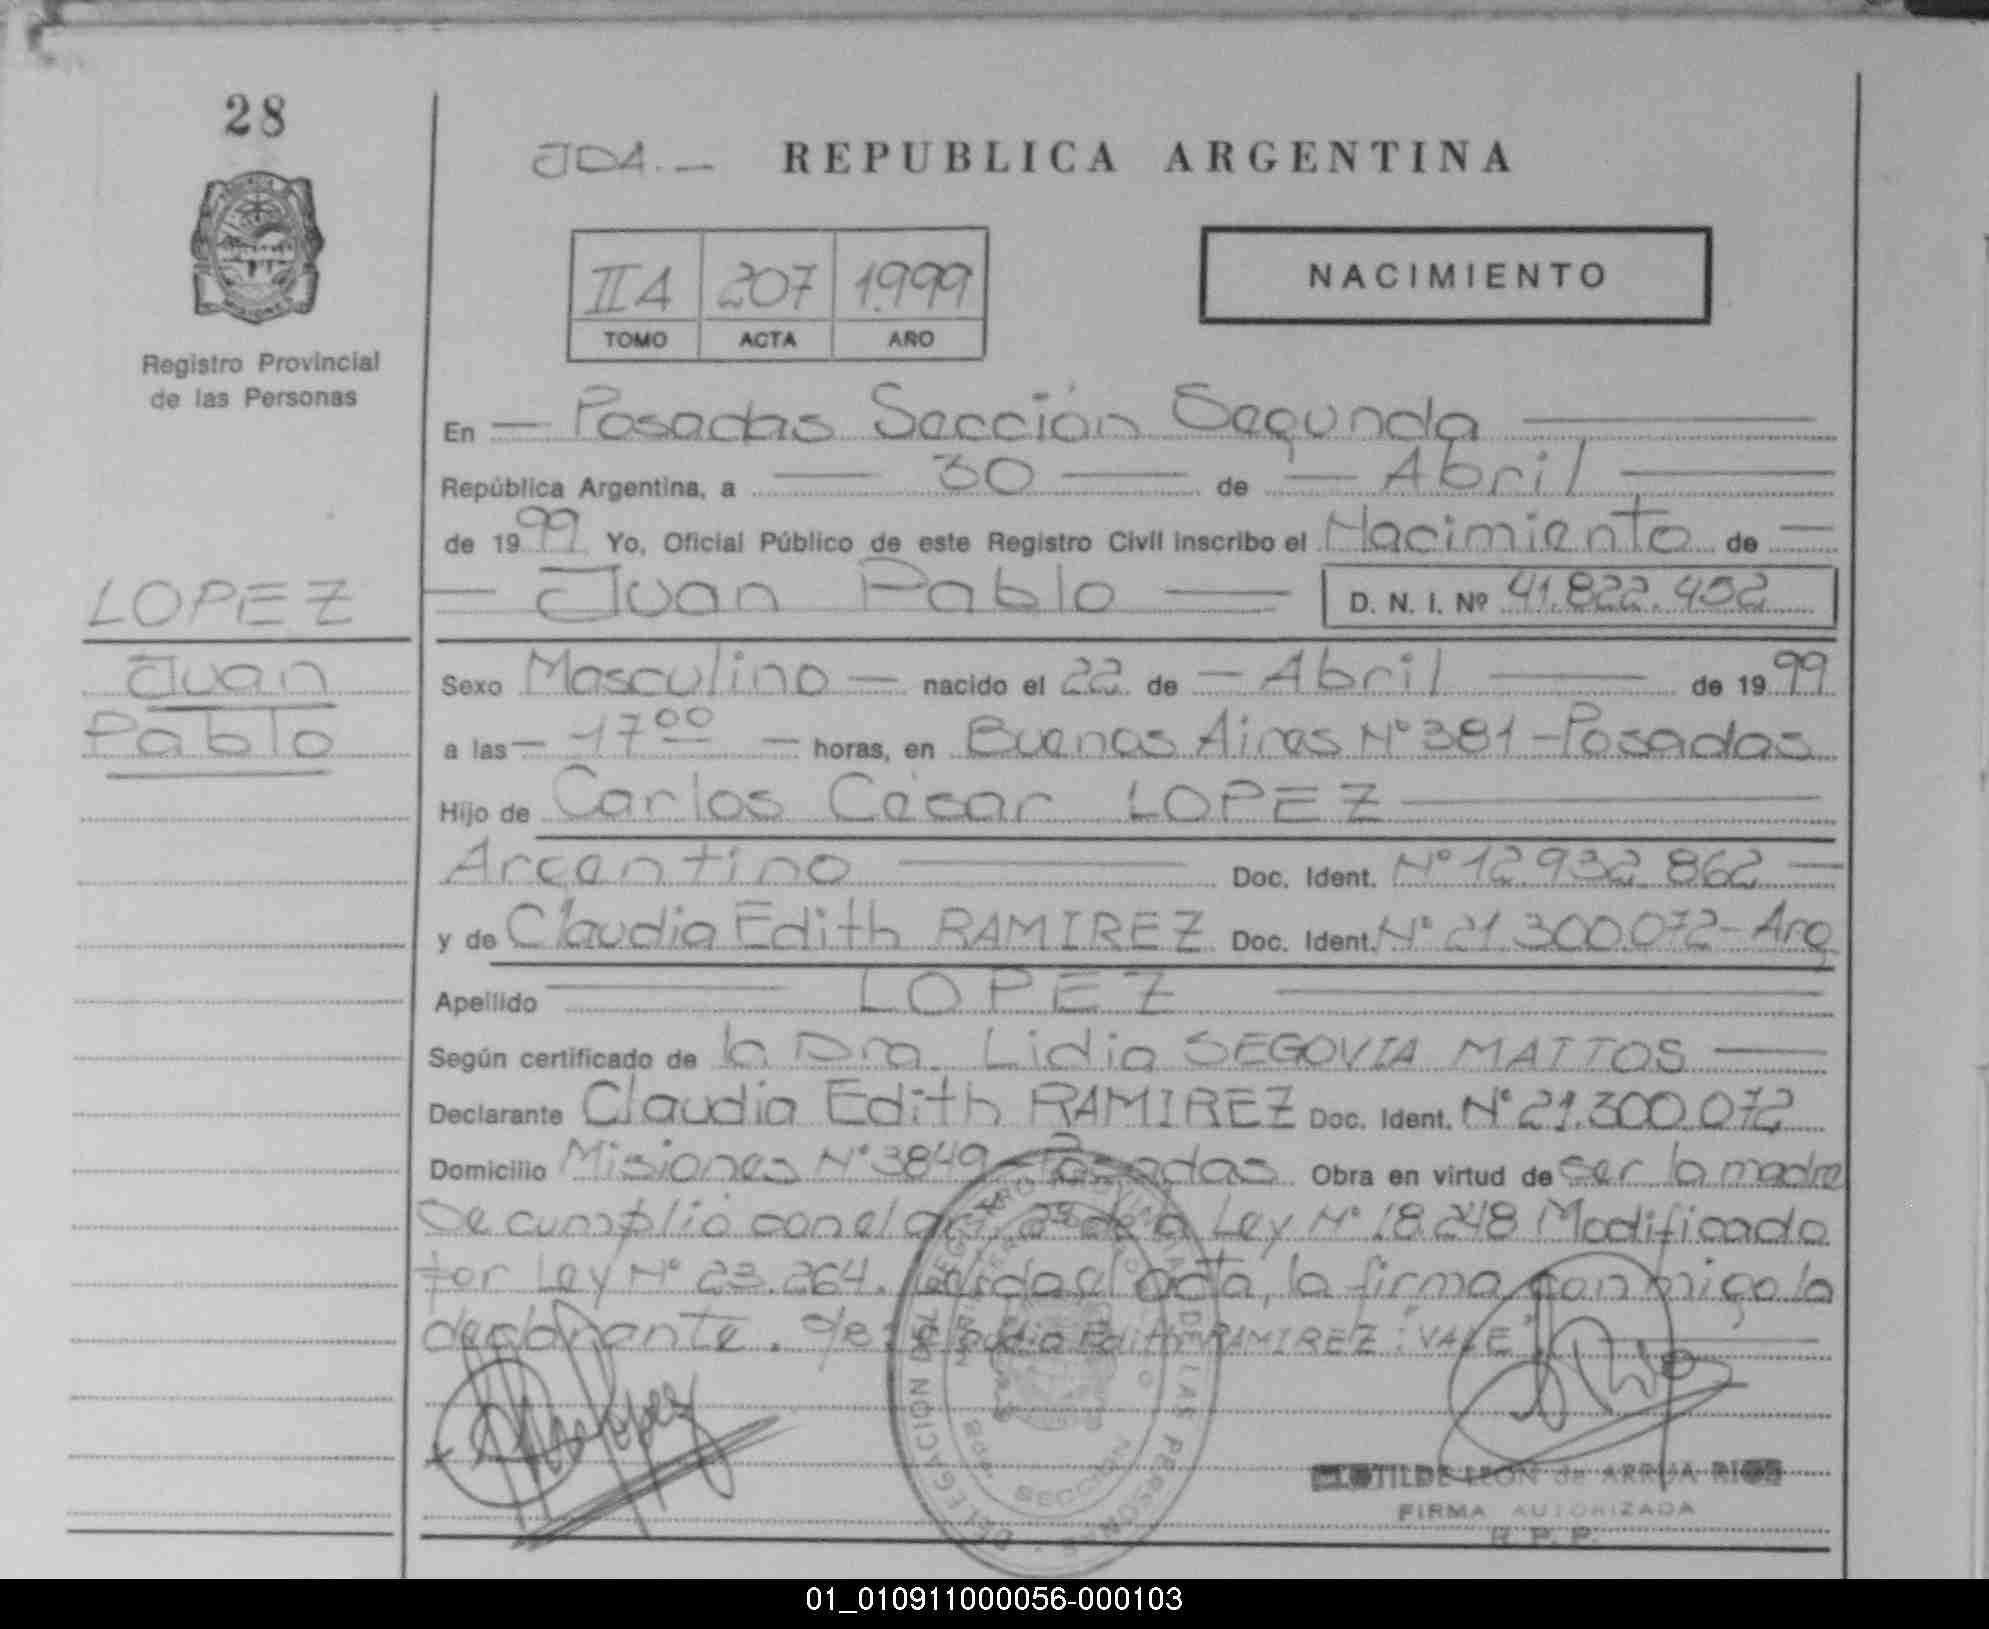 28
JDA.— REPUBLICA ARGENTINA
IIA 207 1.999
TOMO ACTA AÑO
NACIMIENTO
Registro Provincial
de las Personas
En — Posadas Sección Segunda —
República Argentina, a — 30 — de — Abril —
de 1999 Yo, Oficial Público de este Registro Civil inscribo el Nacimiento de —
— Juan Pablo — D. N. I. Nº 41.822.402
LOPEZ
Juan
Pablo
Sexo Masculino — nacido el 22 de — Abril — de 1999
a las — 17 00 — horas, en Buenos Aires Nº 381 - Posadas
Hijo de Carlos César LOPEZ —
Argentino — Doc. Ident. Nº 12.932.862 —
y de Claudia Edith RAMIREZ Doc. Ident. Nº 21.300.072 - Arg
Apellido — LOPEZ —
Según certificado de la Dra. Lidia SEGOVIA MATTOS —
Declarante Claudia Edith RAMIREZ Doc. Ident. Nº 21.300.072
Domicilio Misiones Nº 3849 - Posadas Obra en virtud de ser la madre
Se cumplió con el de la Ley Nº 18.248 Modificado
por Ley Nº 23.264. Leída el acta, la firma conmigo la
declarante. Claudia Edith RAMIREZ: "VALE"
Lopez
DELEGACION DEL REGISTRO PROVINCIAL DE LAS PERSONAS
2da. SECCION
CLOTILDE LEON de ARRUA RIOS
FIRMA AUTORIZADA
R. P. P.
01_010911000056-000103